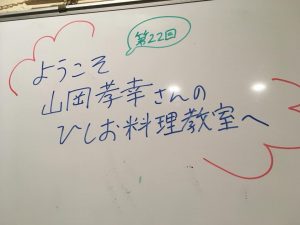 第22回
ようこそ
山岡孝幸さんの
ひしお料理教室へ